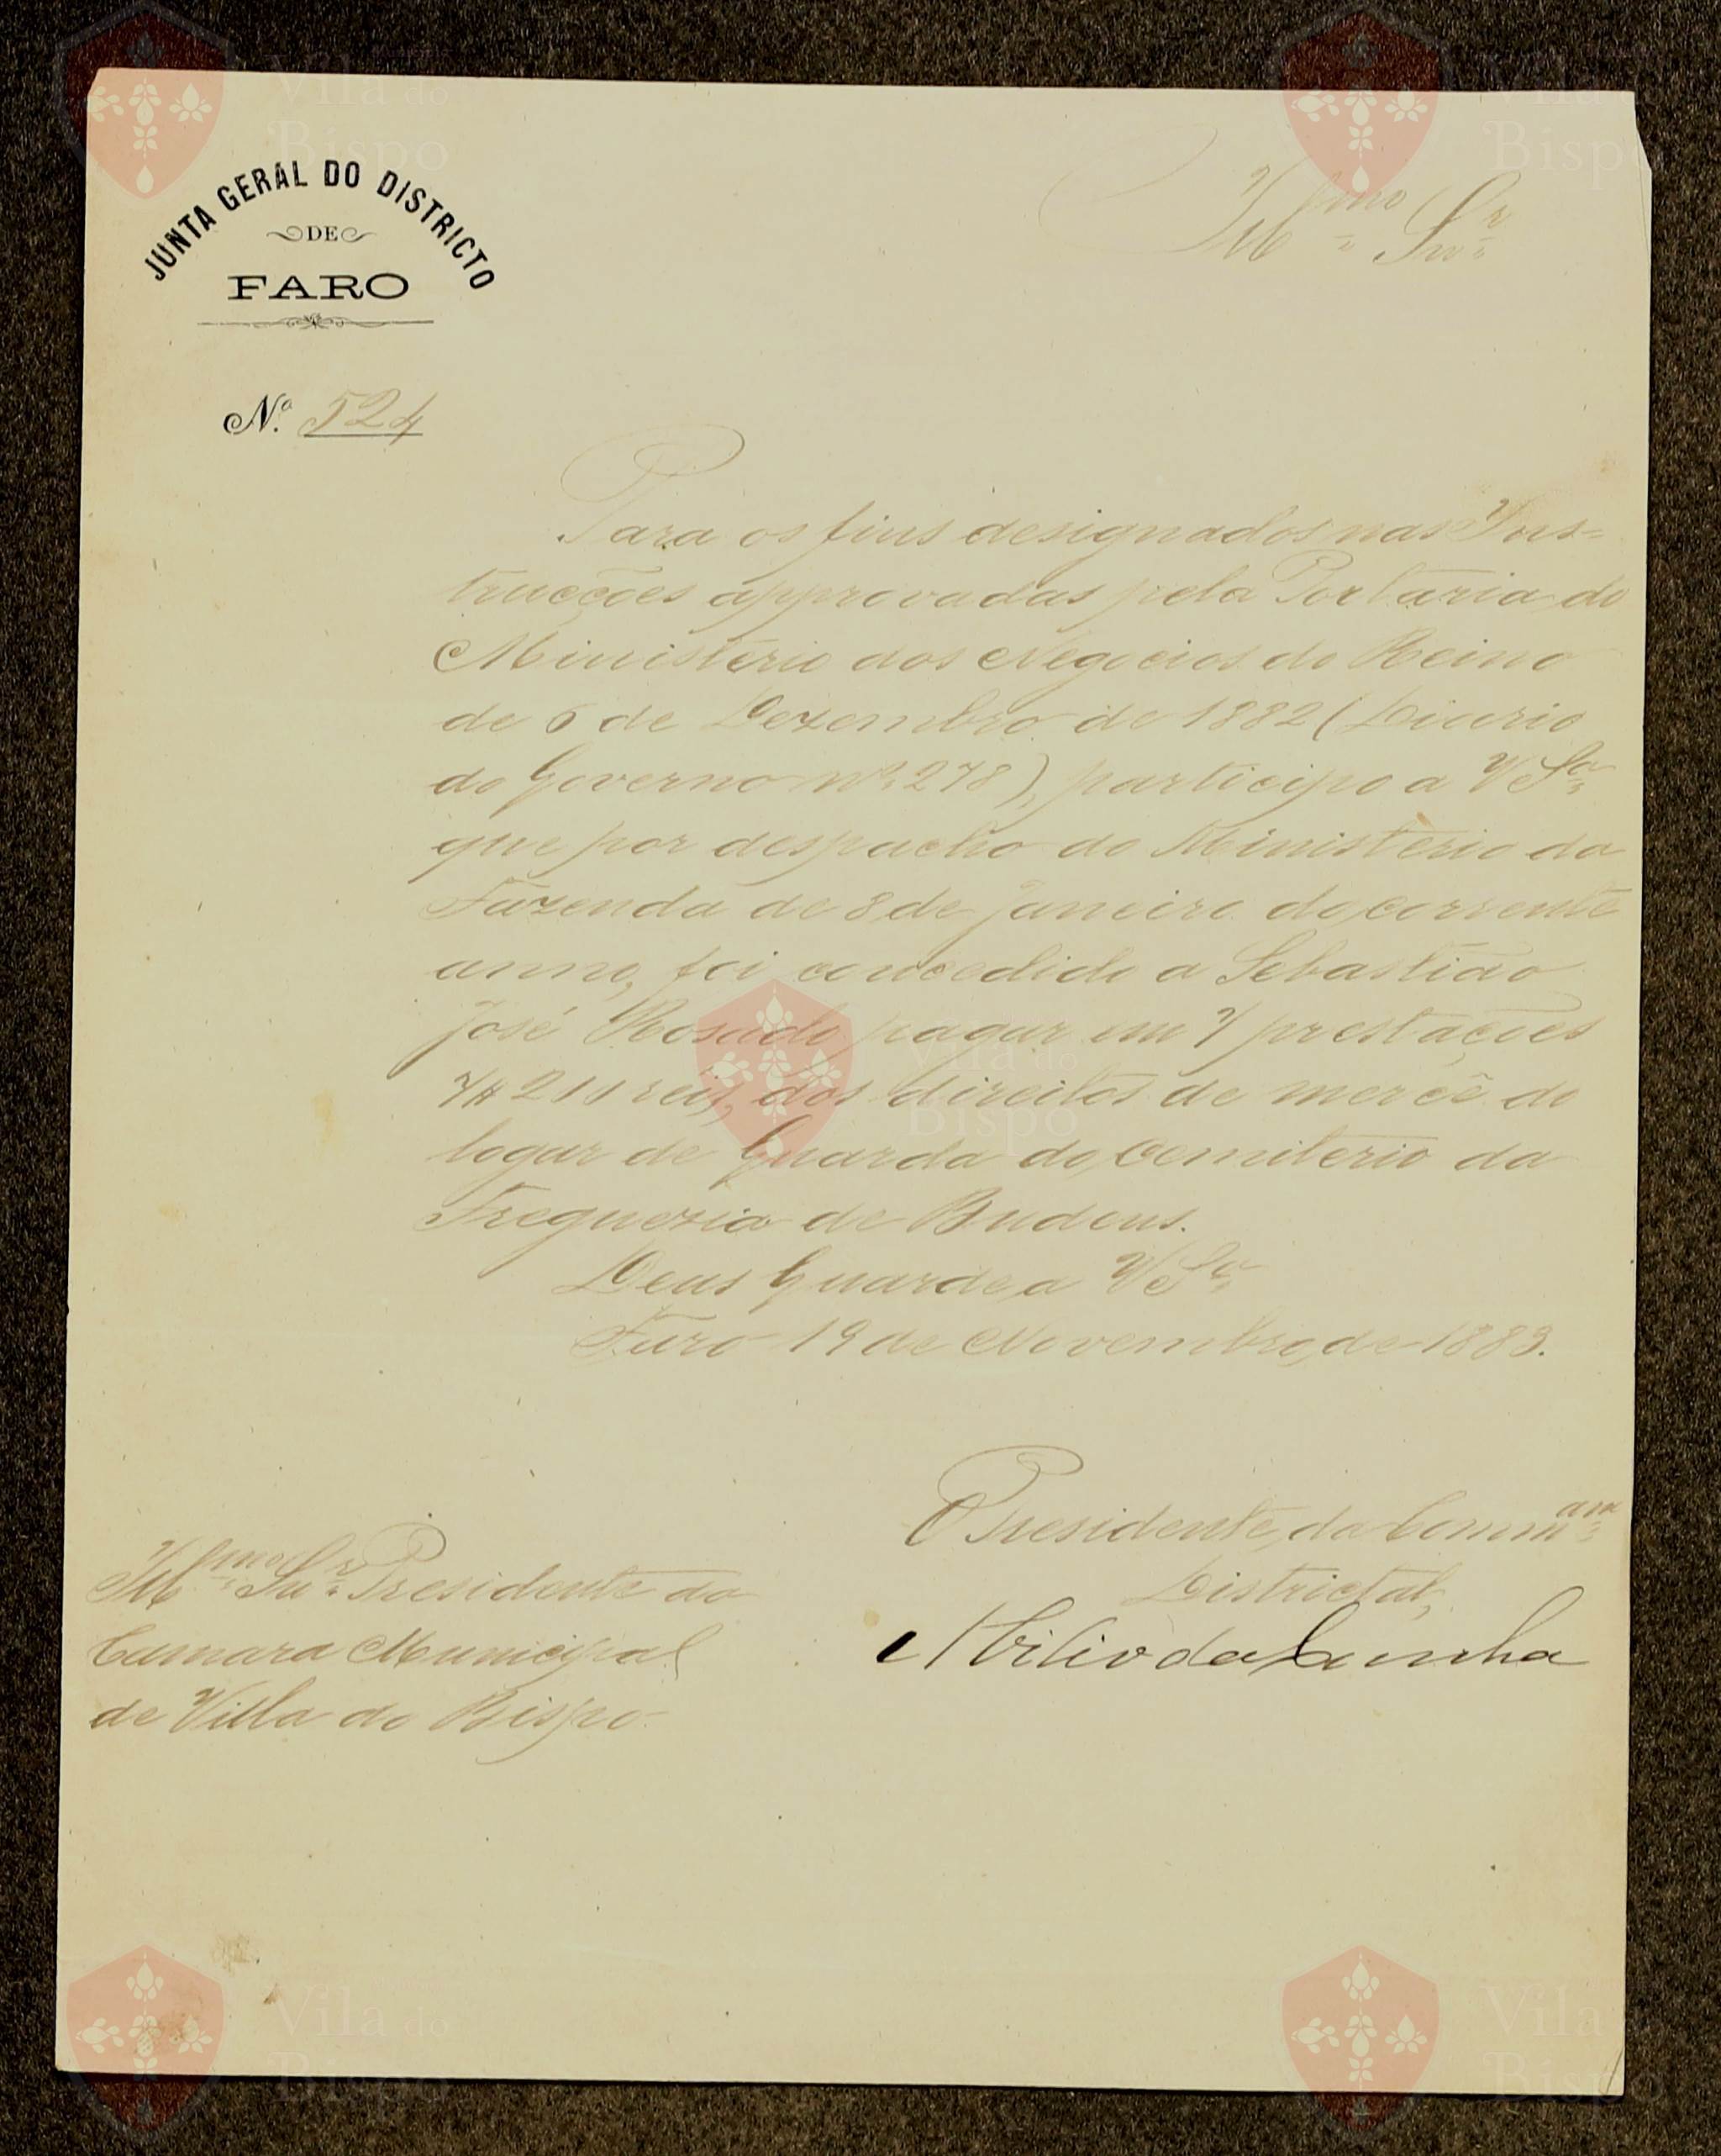 JUNTA GERAL DO DISTRICTO
DE
FARO
Illmo Snr
Nº 524
Para os fins designados nas Ins-
trucções approvadas pela Portaria do
Ministerio dos Negocios do Reino
de 6 de Dezembro de 1882 (Diario
do Governo nº 278), participo a V Sa
que por despacho do Ministerio da
Fazenda de 8 de Janeiro do corrente
anno, foi concedido a Sebastião
José Rosado pagar em 7 prestações
reis, dos direitos de mercê do
logar de Guarda do Cemiterio da
Freguezia de Budens.
Deus Guarde a V Sa
Faro 19 de Novembro de 1883.
O Presidente da Commam
Districtal,
Abilio da Cunha
Illmo Snr Presidente da
Camara Municipal
de Villa do Bispo
Vila do
Bispo
Vila
Bispo
Vila do
Bispo
Vila do
Bispo
Vila
Bispo